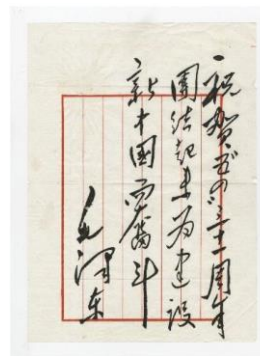 祝贺“五四”三十一周年
團结起来为建設
新中國而奮斗
毛泽东